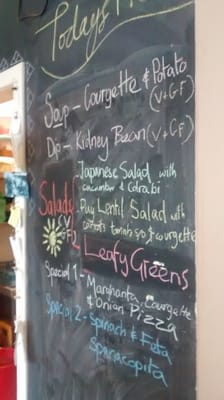 Today's
Soup - Courgette & Potato
(V+GF)
Dip - Kidney Bean (V+GF)
Japanese Salad with
cucumber & Colrabi
Salads
Puy Lentil Salad with
& courgette
Leafy Greens
Special 1 -
Courgette
& Onion Pizza
Special 2 - Spinach & Feta
Spanacopita